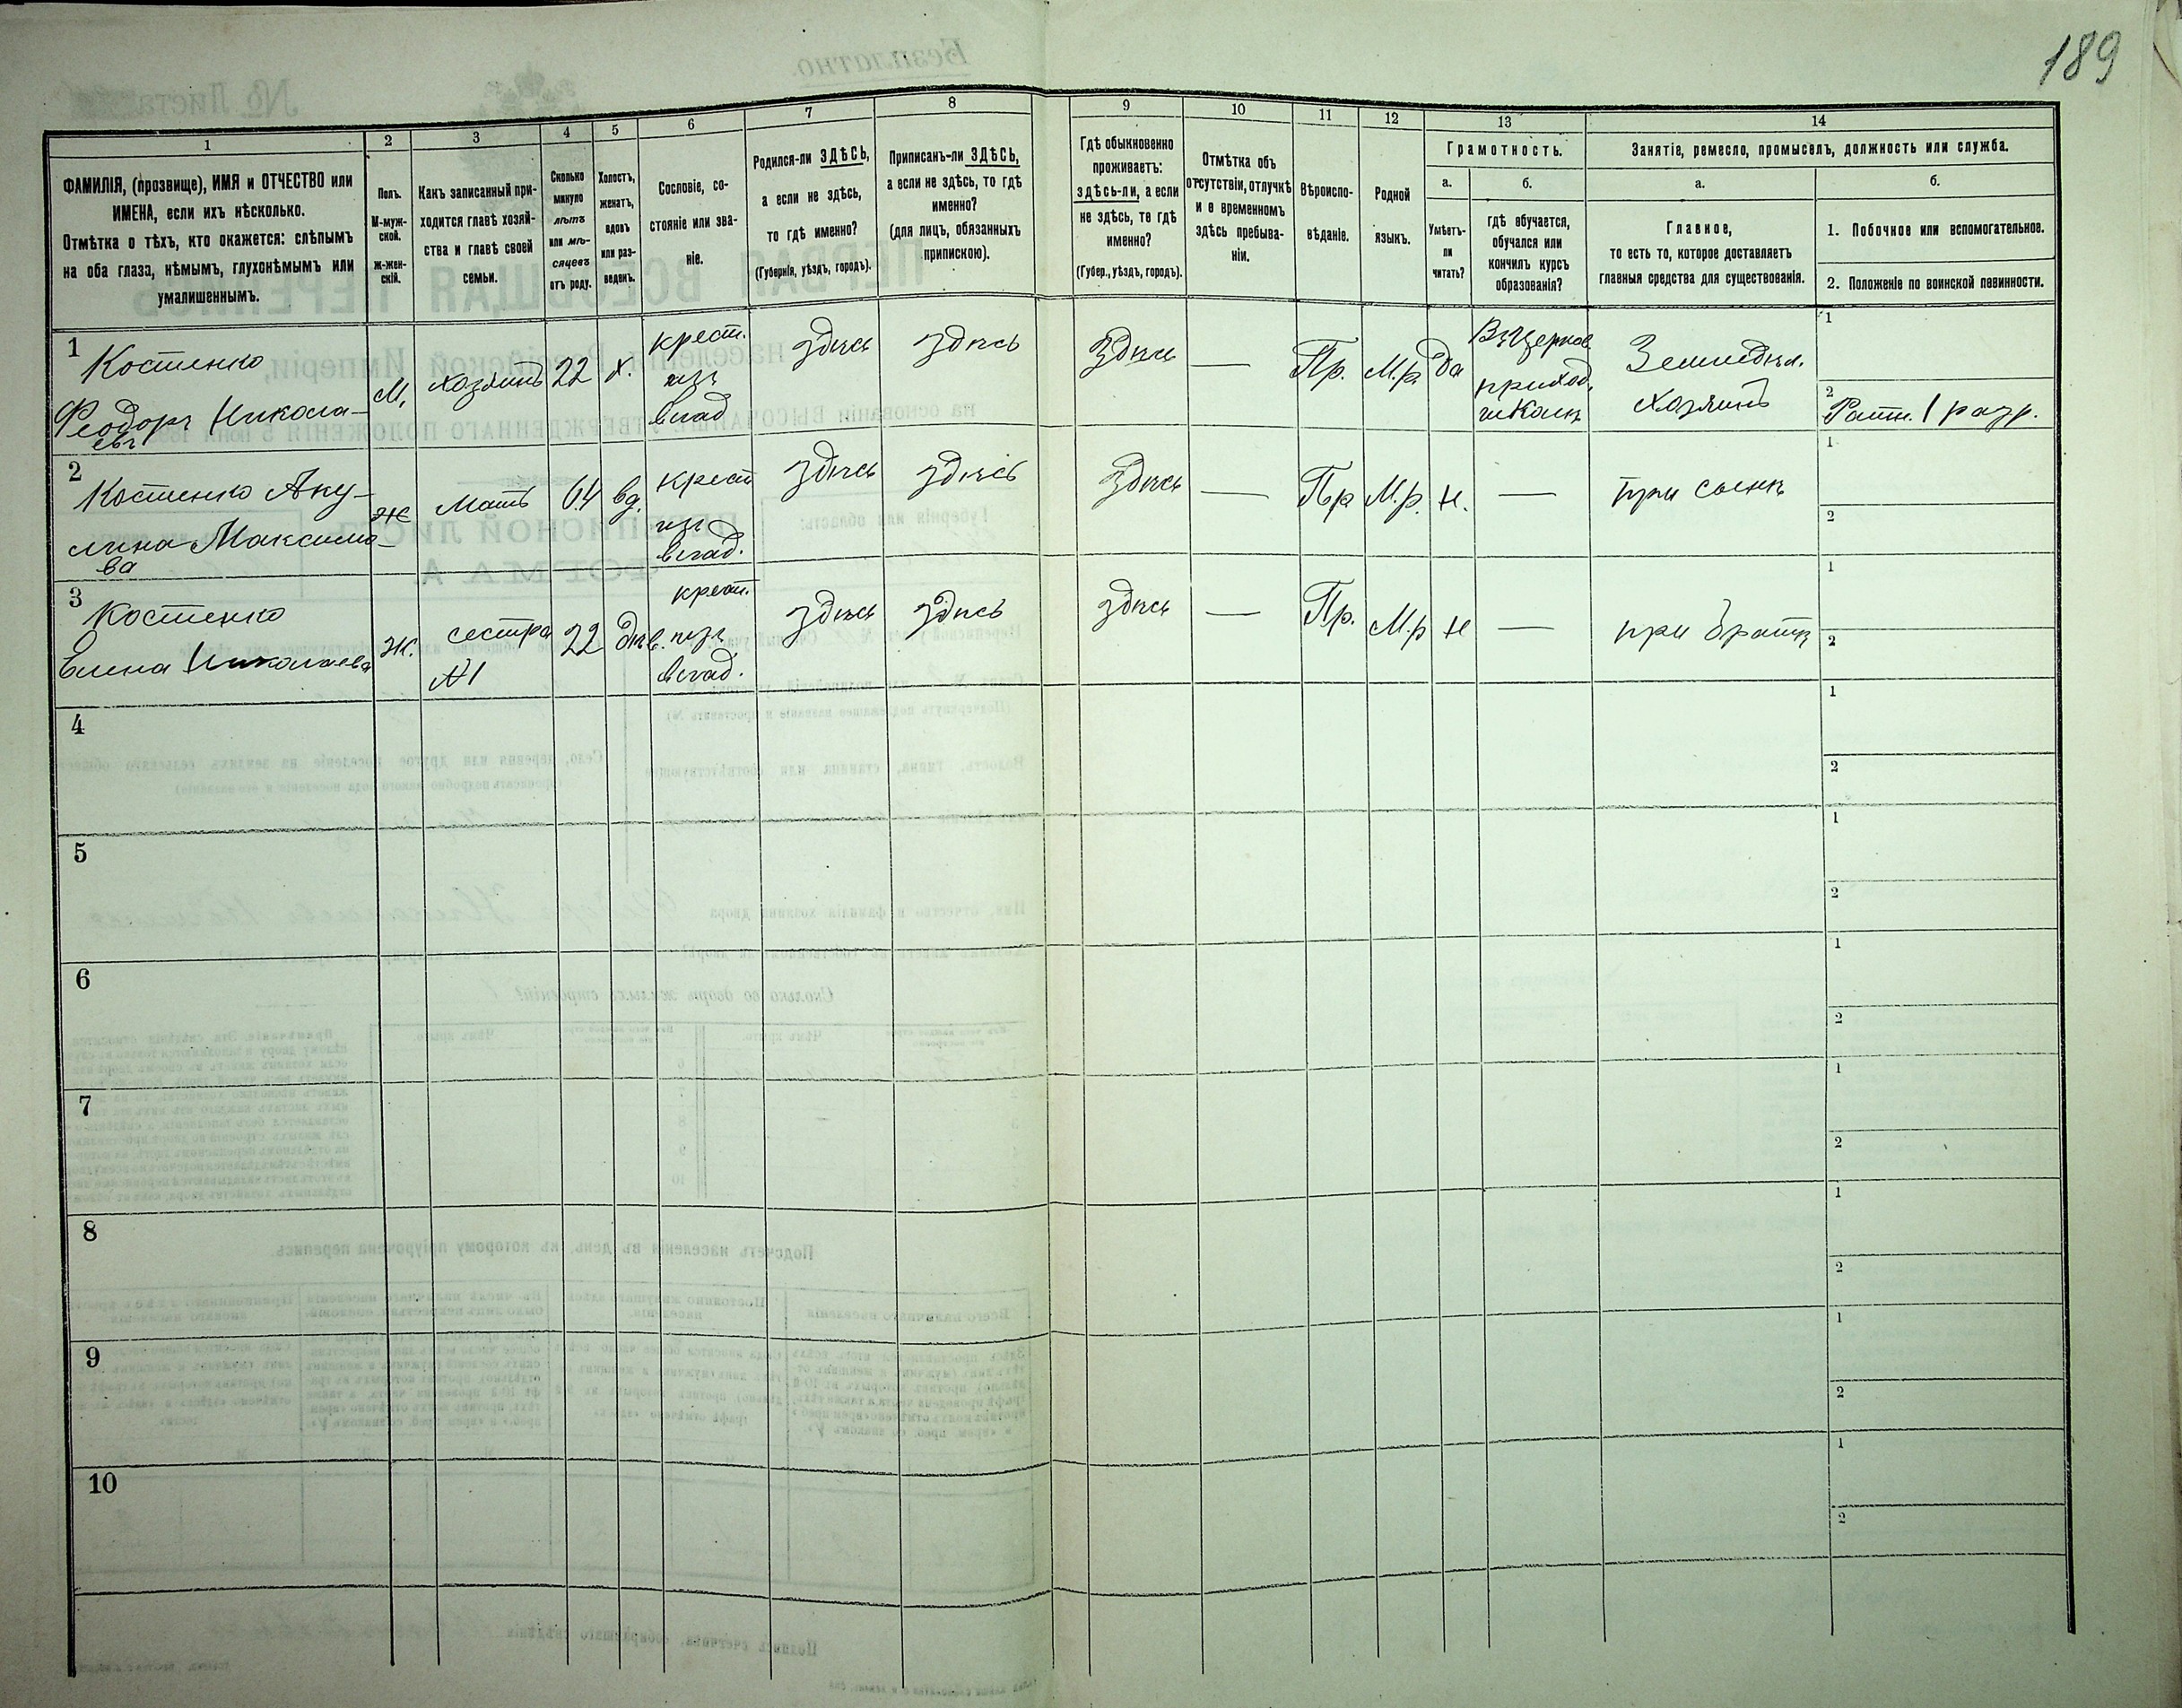 189
1
2
3
4
5
6
7
8
9
10
11
12
13
14
ФАМИЛІЯ, (прозвище), ИМЯ и ОТЧЕСТВО или
ИМЕНА, если ихъ нѣсколько.
Отмѣтка о тѣхъ, кто окажется: слѣпымъ
на оба глаза, нѣмымъ, глухонѣмымъ или
умалишеннымъ.
Полъ.
М-муж-
ской.
ж-жен-
скій.
Какъ записанный при-
ходится главѣ хозяй-
ства и главѣ своей
семьи.
Сколько
минуло
лѣтъ
или мѣ-
сяцевъ
отъ роду.
Холостъ,
женатъ,
вдовъ
или раз-
веденъ.
Сословіе, со-
стояніе или зва-
ніе.
Родился-ли ЗДѢСЬ,
а если не здѣсь,
то гдѣ именно?
(Губернія, уѣздъ, городъ).
Приписанъ-ли ЗДѢСЬ,
а если не здѣсь, то гдѣ
именно?
(для лицъ, обязанныхъ
припискою).
Гдѣ обыкновенно
проживаетъ:
здѣсь-ли, а если
не здѣсь, то гдѣ
именно?
(Губер., уѣздъ, городъ).
Отмѣтка объ
отсутствіи, отлучкѣ
и о временномъ
здѣсь пребыва-
ніи.
Вѣроиспо-
вѣданіе.
Родной
языкъ.
Грамотность.
а.
Умѣетъ-
ли
читать?
б.
гдѣ обучается,
обучался или
кончилъ курсъ
образованія?
Занятіе, ремесло, промыселъ, должность или служба.
а.
Главное,
то есть то, которое доставляетъ
главныя средства для существованія.
б.
1. Побочное или вспомогательное.
2. Положеніе по воинской повинности.
1
Костенко
Феодоръ Никола-
евъ
М.
хозяинъ
22
х.
крест.
изъ
влад
здѣсь
здѣсь
здѣсь
—
Пр.
М.р.
да
Въ церков.
приход.
школѣ
Земледѣл.
хозяинъ
1
2
Ратн. 1 разр.
2
Костенко Аку-
лина Максимо-
ва
ж
мать
64
вд.
крест
изъ
влад.
здѣсь
здѣсь
здѣсь
—
Пр
М.р.
н.
—
при сынѣ
1
2
3
Костенко
Елена Николаева
ж.
сестра
№1
22
дѣв.
крест.
изъ
влад.
здѣсь
здѣсь
здѣсь
—
Пр.
М.р
н
—
при братѣ
1
2
4
1
2
5
1
2
6
1
2
7
1
2
8
1
2
9
1
2
10
1
2